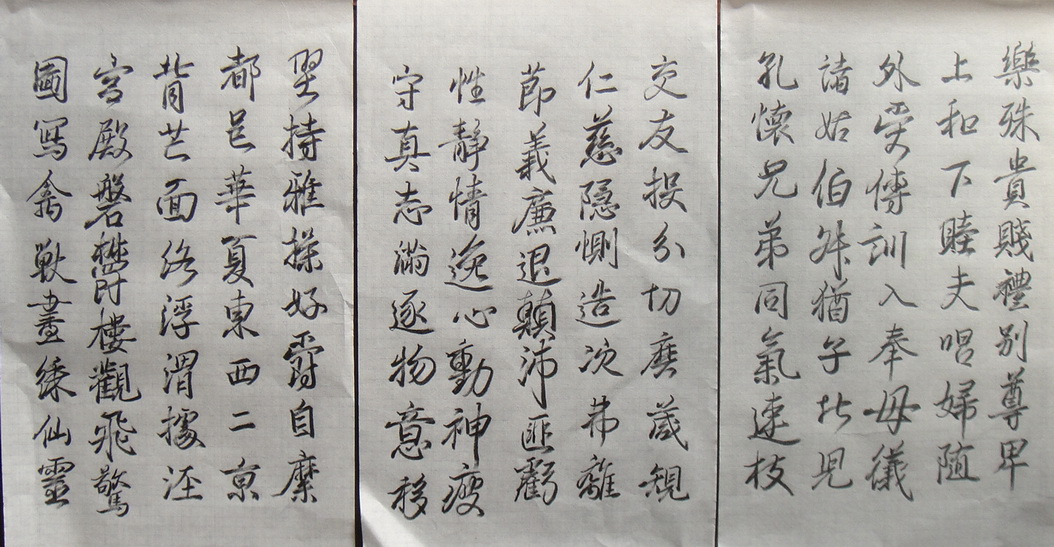 樂殊貴賤禮別尊卑
上和下睦夫唱婦隨
外受傅訓入奉母儀
諸姑伯叔猶子比兒
孔懷兄弟同氣連枝
交友投分切磨箴規
仁慈隱惻造次弗離
節義廉退顛沛匪虧
性靜情逸心動神疲
守真志滿逐物意移
堅持雅操好爵自縻
都邑華夏東西二京
背芒面洛浮渭據涇
宮殿磐鬱樓觀飛驚
圖寫禽獸畫綵仙靈